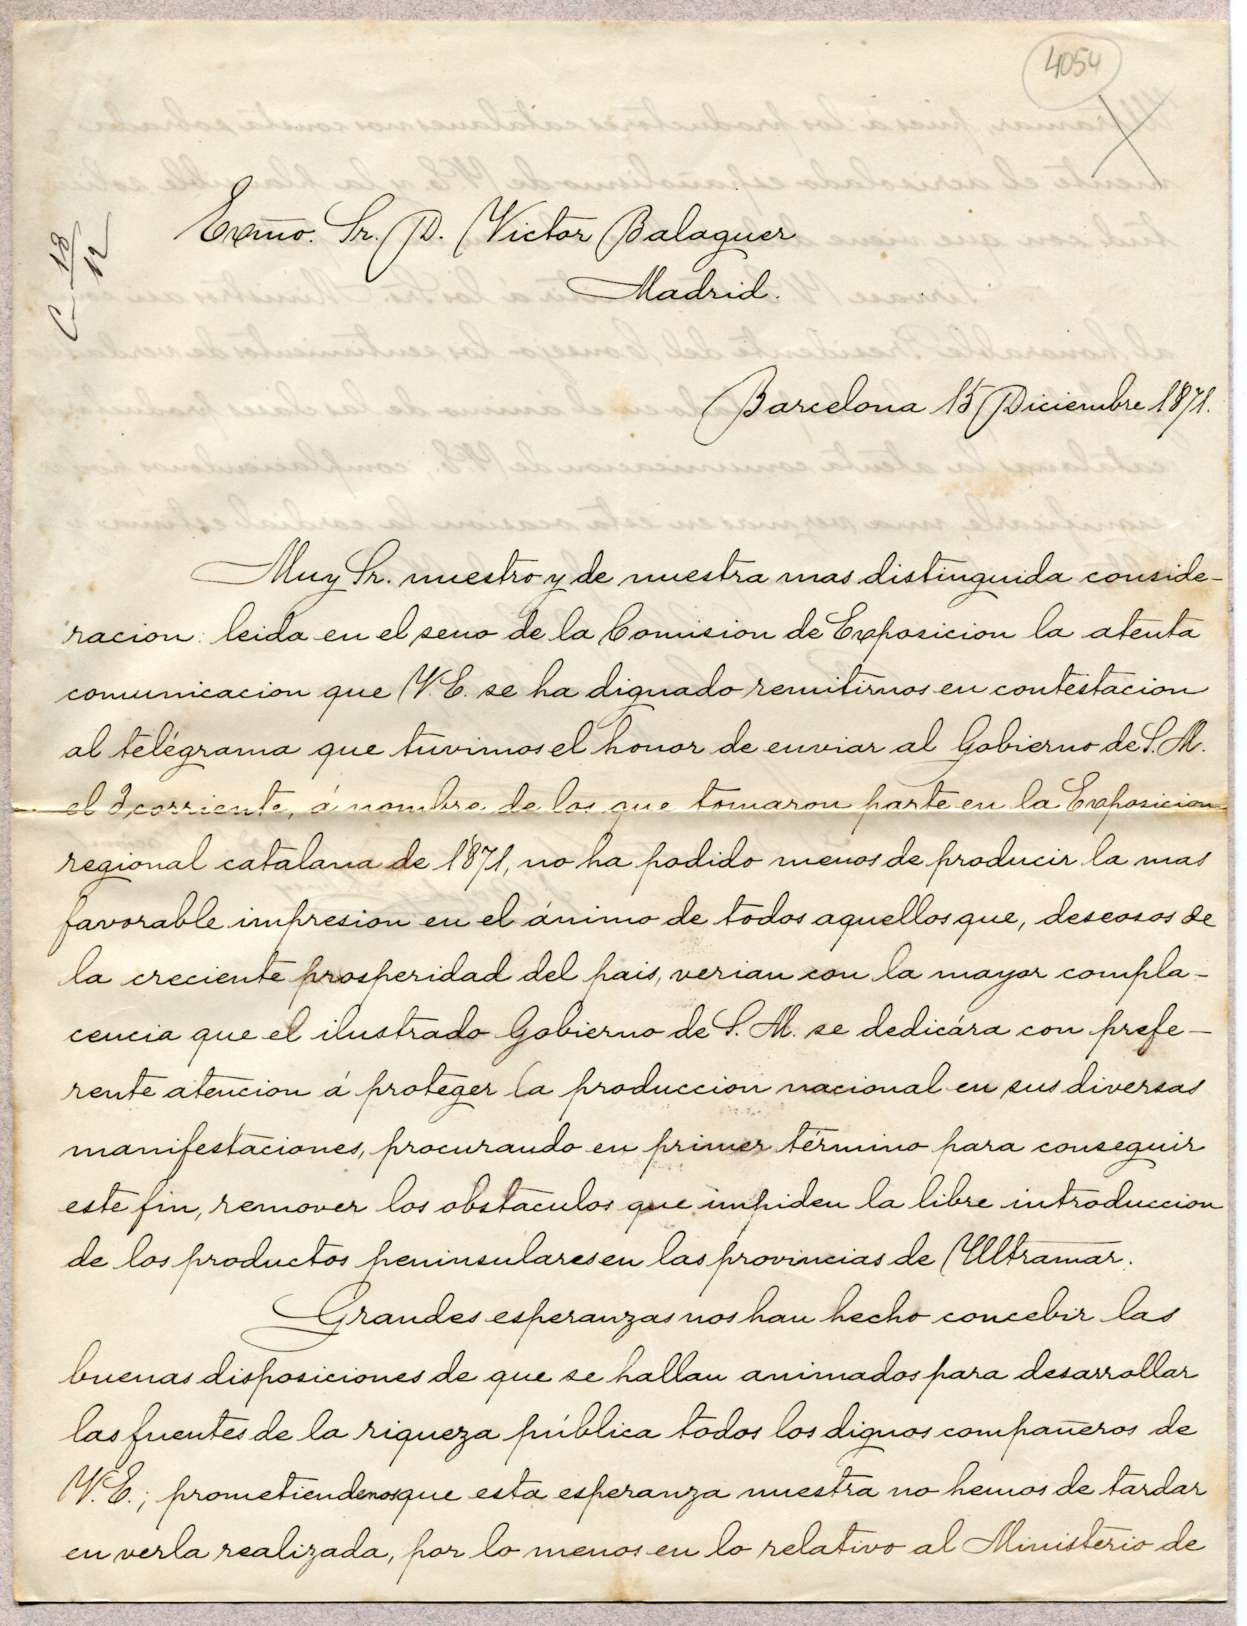 4054
C-18/12
Exmo. Sr. D. Victor Balaguer
Madrid.
Barcelona 15 Diciembre 1871.
Muy Sr. nuestro y de nuestra mas distinguida conside-
racion: leida en el seno de la Comision de Exposicion la atenta
comunicacion que V.E. se ha dignado remitirnos en contestacion
al telégrama que tuvimos el honor de enviar al Gobierno de S.M.
el corriente, á nombre de los que tomaron parte en la Exposicion
regional catalana de 1871, no ha podido menos de producir la mas
favorable impresion en el ánimo de todos aquellos que, deseosos de
la creciente prosperidad del pais, verian con la mayor compla-
cencia que el ilustrado Gobierno de S.M. se dedicára con prefe-
rente atencion á proteger la produccion nacional en sus diversas
manifestaciones, procurando en primer término para conseguir
este fin, remover los obstaculos que impiden la libre introduccion
de los productos peninsulares en las provincias de Ultramar.
Grandes esperanzas nos han hecho concebir las
buenas disposiciones de que se hallan animados para desarrollar
las fuentes de la riqueza pública todos los dignos compañeros de
V.E.; prometiendonos que esta esperanza nuestra no hemos de tardar
en verla realizada, por lo menos en lo relativo al Ministerio de